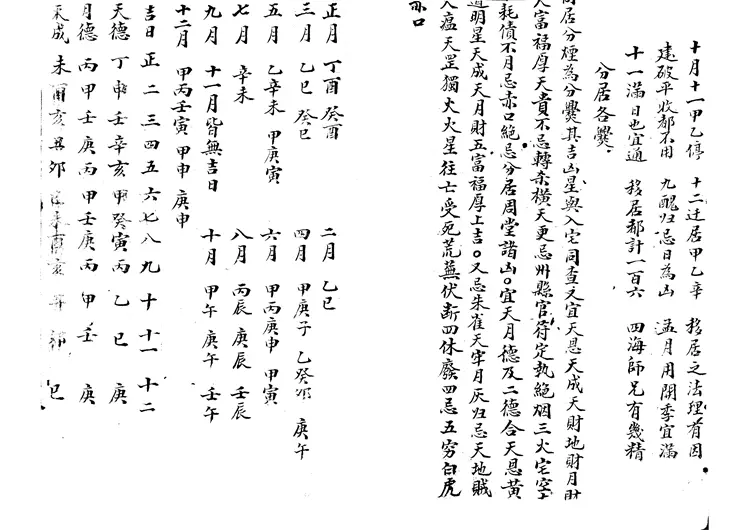 十月十一甲乙停 十二迁居甲乙辛 移居之法理有因
建破平收都不用 九醜归忌日為凶 孟月用開季宜滿
十一滿日也宜通 移居都計一百六 四海師兄有幾精
分居各爨
居分煙為分爨其吉凶星與入宅同查又宜天恩天成天財地財月財
富福厚天貴不忌轉杀橫天更忌州縣官符定执絕烟三火宅空
耗債不月忌赤口絕忌分居周堂諸凶。宜天月德及二德合天恩黄
道明星天成天月財五富福厚上吉。又忌朱雀天牢月厌归忌天地賊
人瘟天罡獨火火星往亡受死荒蕪伏断四休廢四忌五穷白虎
赤口
正月 丁酉 癸酉 二月 乙巳
三月 乙巳 癸巳 四月 甲庚子 乙癸卯 庚午
五月 乙辛未 甲庚寅 六月 甲丙庚申 甲寅
七月 辛未 八月 丙辰 庚辰 壬辰
九月 十一月皆無吉日 十月 甲午 庚午 壬午
十二月 甲丙壬寅 甲申 庚申
吉日 正 二 三 四 五 六 七 八 九 十 十一 十二
天德 丁 申 壬 辛 亥 甲 癸 寅 丙 乙 巳 庚
月德 丙 甲 壬 庚 丙 甲 壬 庚 丙 甲 壬 庚
天成 未 酉 亥 丑 卯 巳 未 酉 亥 丑 卯 巳